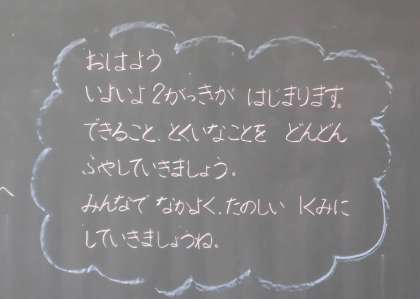 おはよう
いよいよ2がっきが はじまります。
できること、とくいなことを どんどん
ふやしていきましょう。
みんなで なかよく、たのしい 1くみに
していきましょうね。
へ